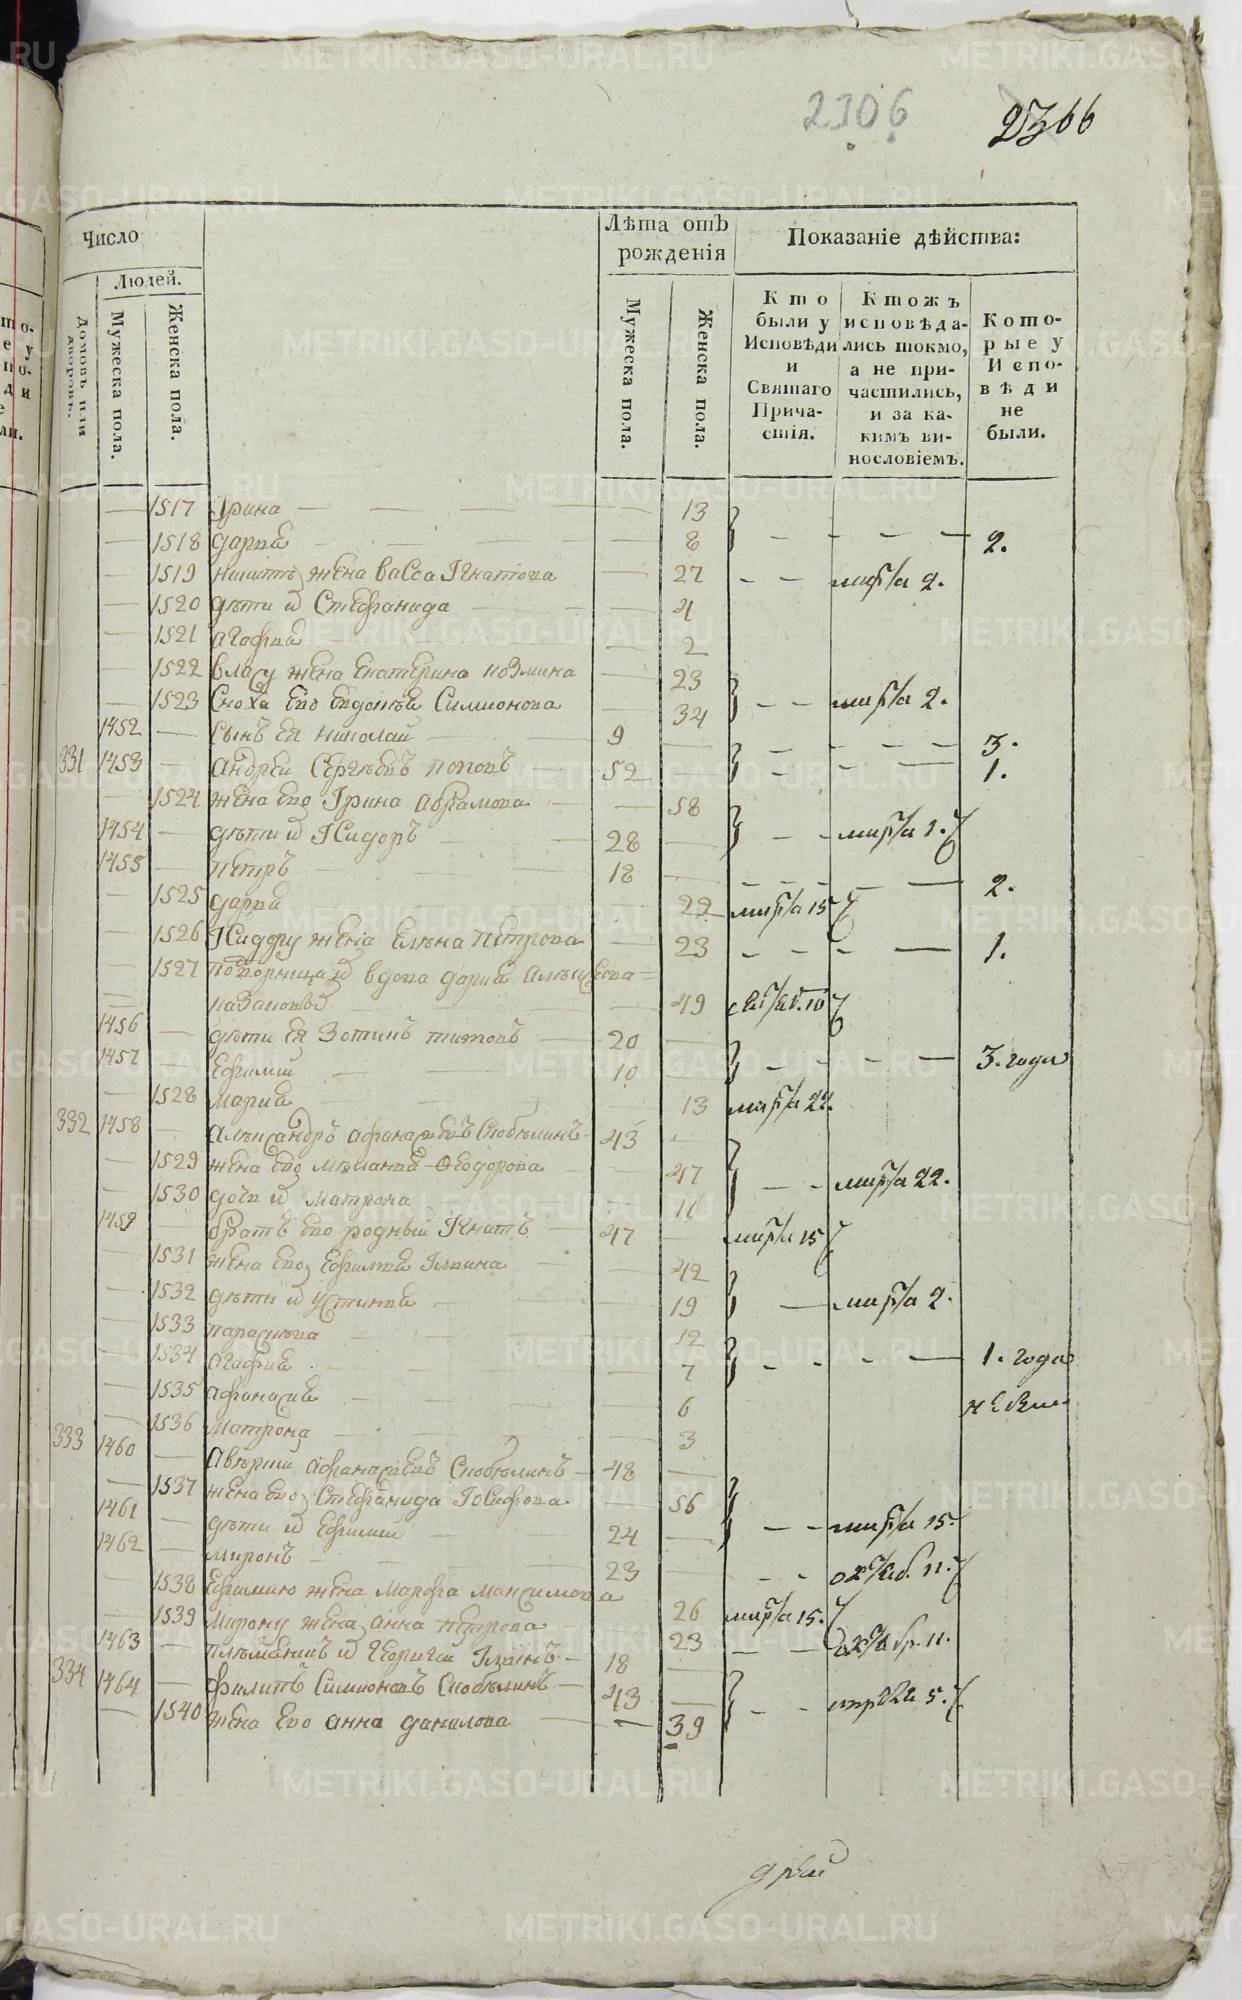 2306
2366
Число
Лѣта отъ рожденія
Показаніе дѣйства:
Людей.
Домовъ или дворовъ.
Мужеска пола.
Женска пола.
Мужеска пола.
Женска пола.
Кто были у Исповѣди и Святаго Прича- стія.
Ктожъ исповѣда- лись токмо, а не при- частились, и за ка- кимъ ви- нословіемъ.
Кото- рые у Испо- вѣди не были.
1517 Ірина 13
1518 дарья 8 2.
1519 жена васса Игнатова 27 марта 2.
1520 дѣти и Стефанида 4
1521 агафия 2
1522 власу жена екатерина козмина 23
1523 Сноха его евдокия Симионова 34 марта 2.
1452 сынъ ея николай 9 3.
331 1453 андрей Сергѣевъ поповъ 52 1.
1524 жена его Ірина абрамова 58
1454 дѣти и Исидоръ 28 марта 1.
1455 петръ 18 2.
1525 дария 22 марта 15
1526 Исидору жена елена петрова 23 1.
1527 вдова дария алексѣева
казакова 49 10
1456 дѣти ея Зотикъ титовъ 20
1457 Ефимий 10 3. года
1528 Мария 13 марта 22.
332 1458 александръ афанасьевъ Скобѣлинъ 43
1529 жена его меланья Феодорова 47 марта 22.
1530 дочь и матрона 11
1459 братъ его родный Игнатъ 47 марта 15
1531 жена его Ефимия Ильина 42
1532 дѣти и устиния 19 марта 2.
1533 параскева 12
1534 агафия 7 1. года
1535 афанасия 6
1536 Матрона 3
333 1460 Аверкий афанасьевъ Скобѣлинъ 48
1537 жена его Стефанида Іосифова 56
1461 дѣти и Ефимий 24 марта 15.
1462 миронъ 23 октяб. 11.
1538 Ефимию жена Марфа максимова 26 марта 15.
1539 Мирону жена анна петрова 23 октябр. 11.
1463 племянникъ и Георгий 18
334 1464 филипъ Симионовъ Скобѣлинъ 43 5.
1540 жена его анна данилова 39